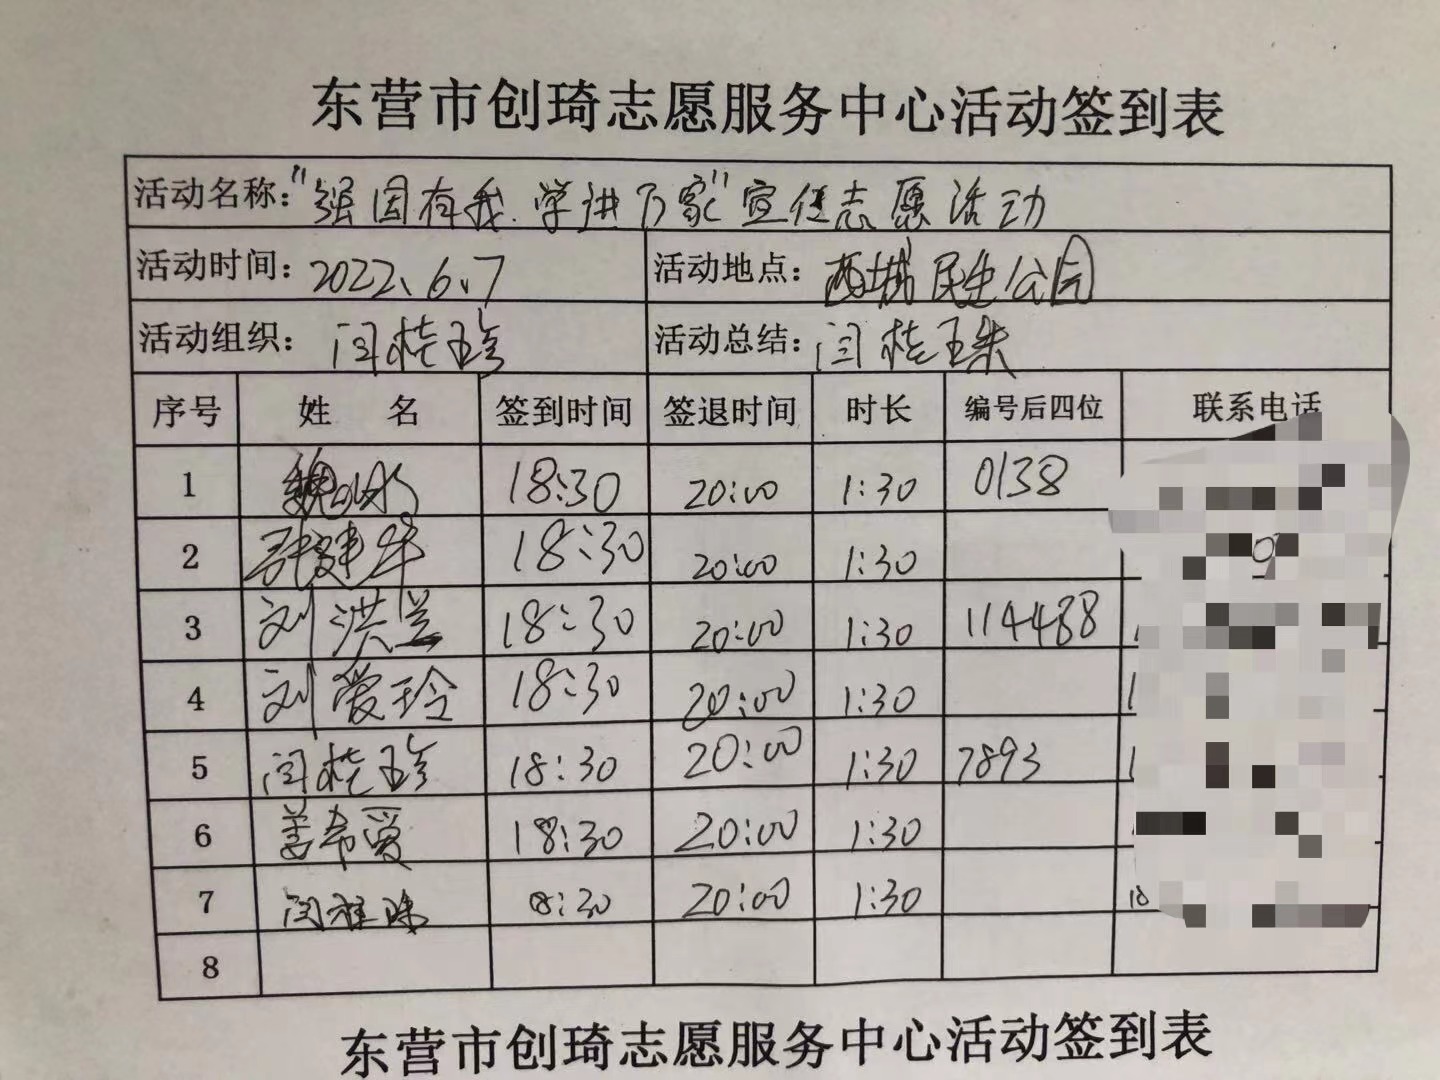 东营市创琦志愿服务中心活动签到表
活动名称："强国有我.学进万家"宣传志愿活动
活动时间：2022.6.7 活动地点：西城民生公园
活动组织：闫桂珍 活动总结：闫桂珠
序号 姓 名 签到时间 签退时间 时长 编号后四位 联系电话
1 18:30 20:00 1:30 0138
2 张建华 18:30 20:00 1:30
3 刘洪兰 18:30 20:00 1:30 114488
4 刘爱玲 18:30 20:00 1:30
5 闫桂珍 18:30 20:00 1:30 7893
6 姜希爱 18:30 20:00 1:30
7 8:30 20:00 1:30 18
8
东营市创琦志愿服务中心活动签到表